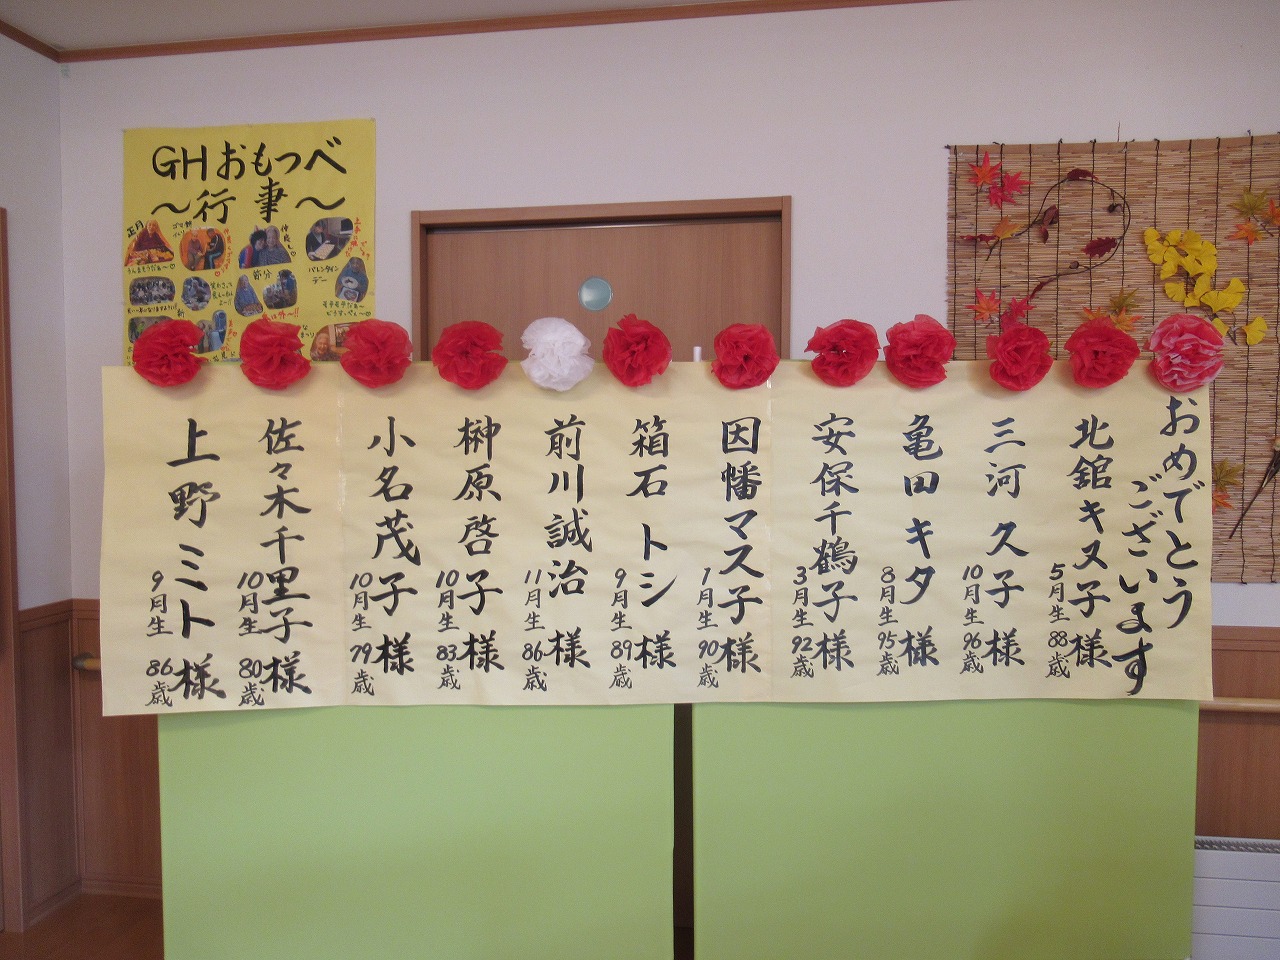 おめでとう
ございます
北舘キヌ子様
5月生 88歳
三河久子様
10月生 96歳
亀田キタ様
8月生 95歳
安保千鶴子様
3月生 92歳
因幡マス子様
1月生 90歳
箱石トシ様
9月生 89歳
前川誠治様
11月生 86歳
榊原啓子様
10月生 83歳
小名茂子様
10月生 79歳
佐々木千里子様
10月生 80歳
上野ミト様
9月生 86歳
GHおもつべ
〜行事〜
正月
節分
バレンタイン
デー